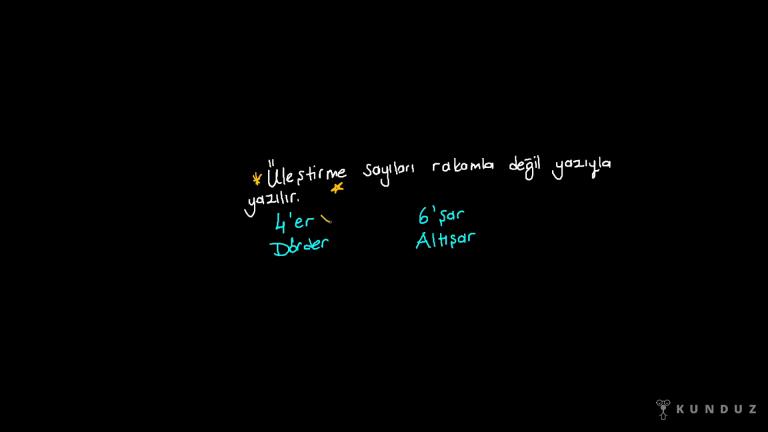 * Üleştirme sayıları rakamla değil yazıyla
yazılır.
4'er 6'şar
Dörder Altışar
KUNDUZ